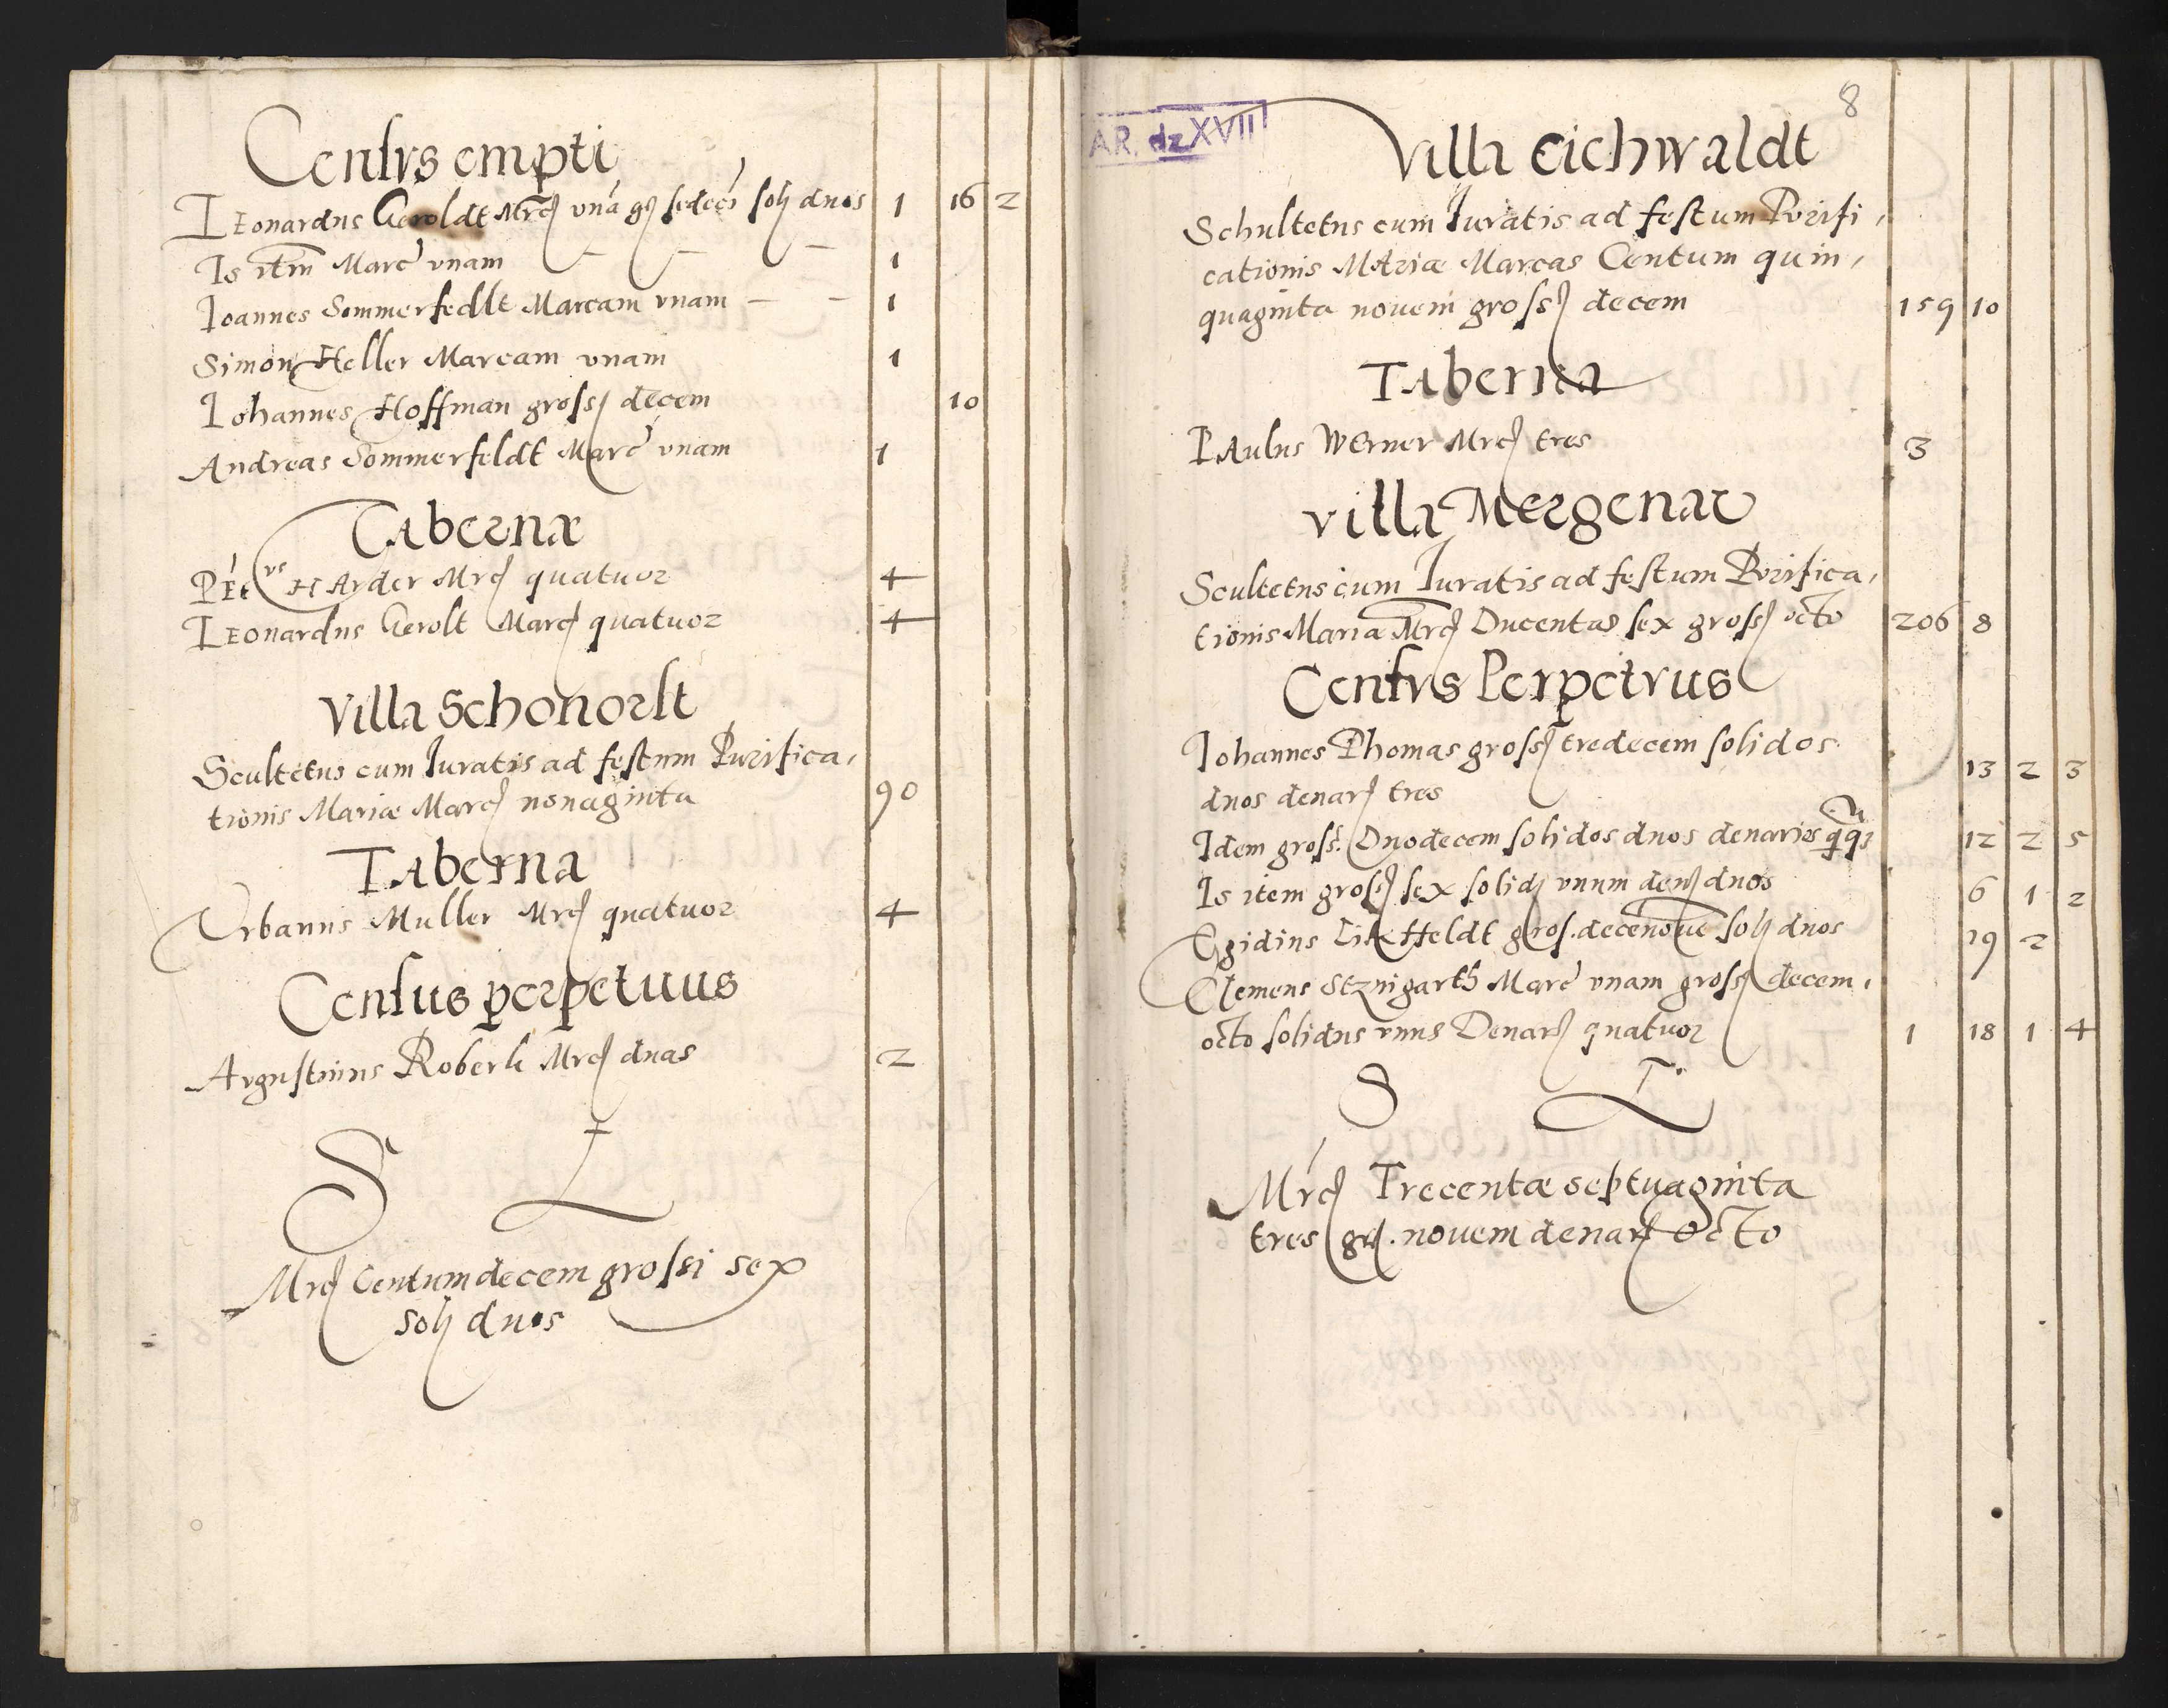 Censvs empti
LEonardus Geroldt Mrc unā gs sedeci sol duos 1 16 2
Is itm Marc unam 1
Ioannes Sommerfedlt Marcam unam — — 1
Simon Heller Marcam unam 1
Iohannes Hoffman gross decem 10
Andreas Sommerfeldt Marc unam 1
TAbernæ
PEtrus HArder Mrc quatuor 4
LEonardus Gerolt Marc quatuor 4
Villa Schonorlt
Scultetus cum Iuratis ad festum Purifica,
tionis Mariæ Marc nonaginta 90
TAberna
Urbanus Muller Mrc quatuor 4
Census perpetuus
Avgustinus Roberli Mrc duas 2
S L
Mrc Centum decem grossi sex
sol duos
8
AR. dz XVII
Villa Eichwaldt
Schultetus cum Iuratis ad festum Purifi,
cationis MAriæ Marcas Centum quin,
quaginta nouem gross decem 159 10
TAberna
PAulus WErner Mrc tres 3
villa Mergenav
Scultetus cum Iuratis ad festum Purifica,
tionis Maria Mrc Ducentas sex gross octo 206 8
Censvs Perpetvus
Iohannes Thomas gross tredecem solidos
duos denar tres 13 2 3
Idem gross. Duodecem solidos duos denarios qiqȝ 12 2 5
Is item gross sex solid unum den duos 6 1 2
Egidius Likefeldt gros. decenoue sol duos 19 2
Clemens Stznigarth Marc unam gross decem,
octo solidus unus Denar quatuor 1 18 1 4
S L
Mrc Trecentæ septuaginta
tres gr. nouem denar octo